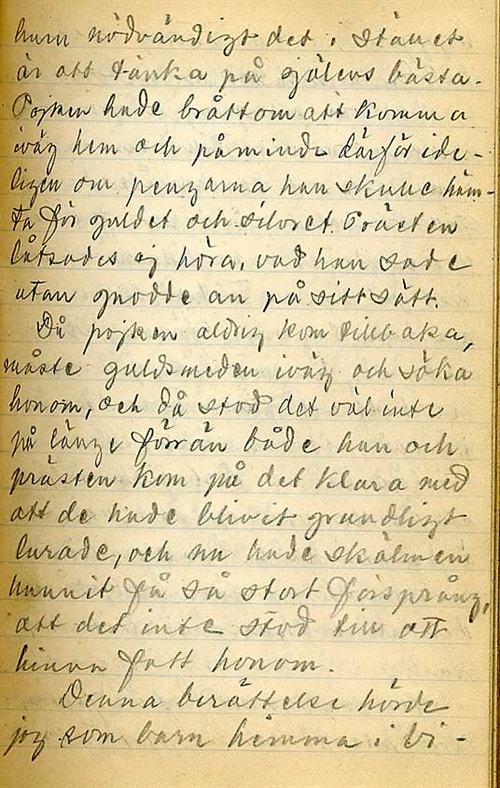 hum nödvändigt det i stället
är att tänka på själens bästa.
Pojken hade bråttom att komma
iväg hem och påminde därför ide-
ligen om pengarna han skulle häm-
ta för guldet och silvret. Prästen
låtsades ej höra, vad han sade
utan gnodde an på sitt sätt.
Då pojken aldrig kom tillbaka,
måste guldsmeden iväg och söka
honom, och då stod det väl inte
på länge förrän både han och
prästen kom på det klara med
att de hade blivit grundligt
lurade, och nu hade skälmen
hunnit få så stort försprång,
att det inte stod till att
hinna fatt honom.
Denna berättelse hörde
jag som barn hemma i bi-